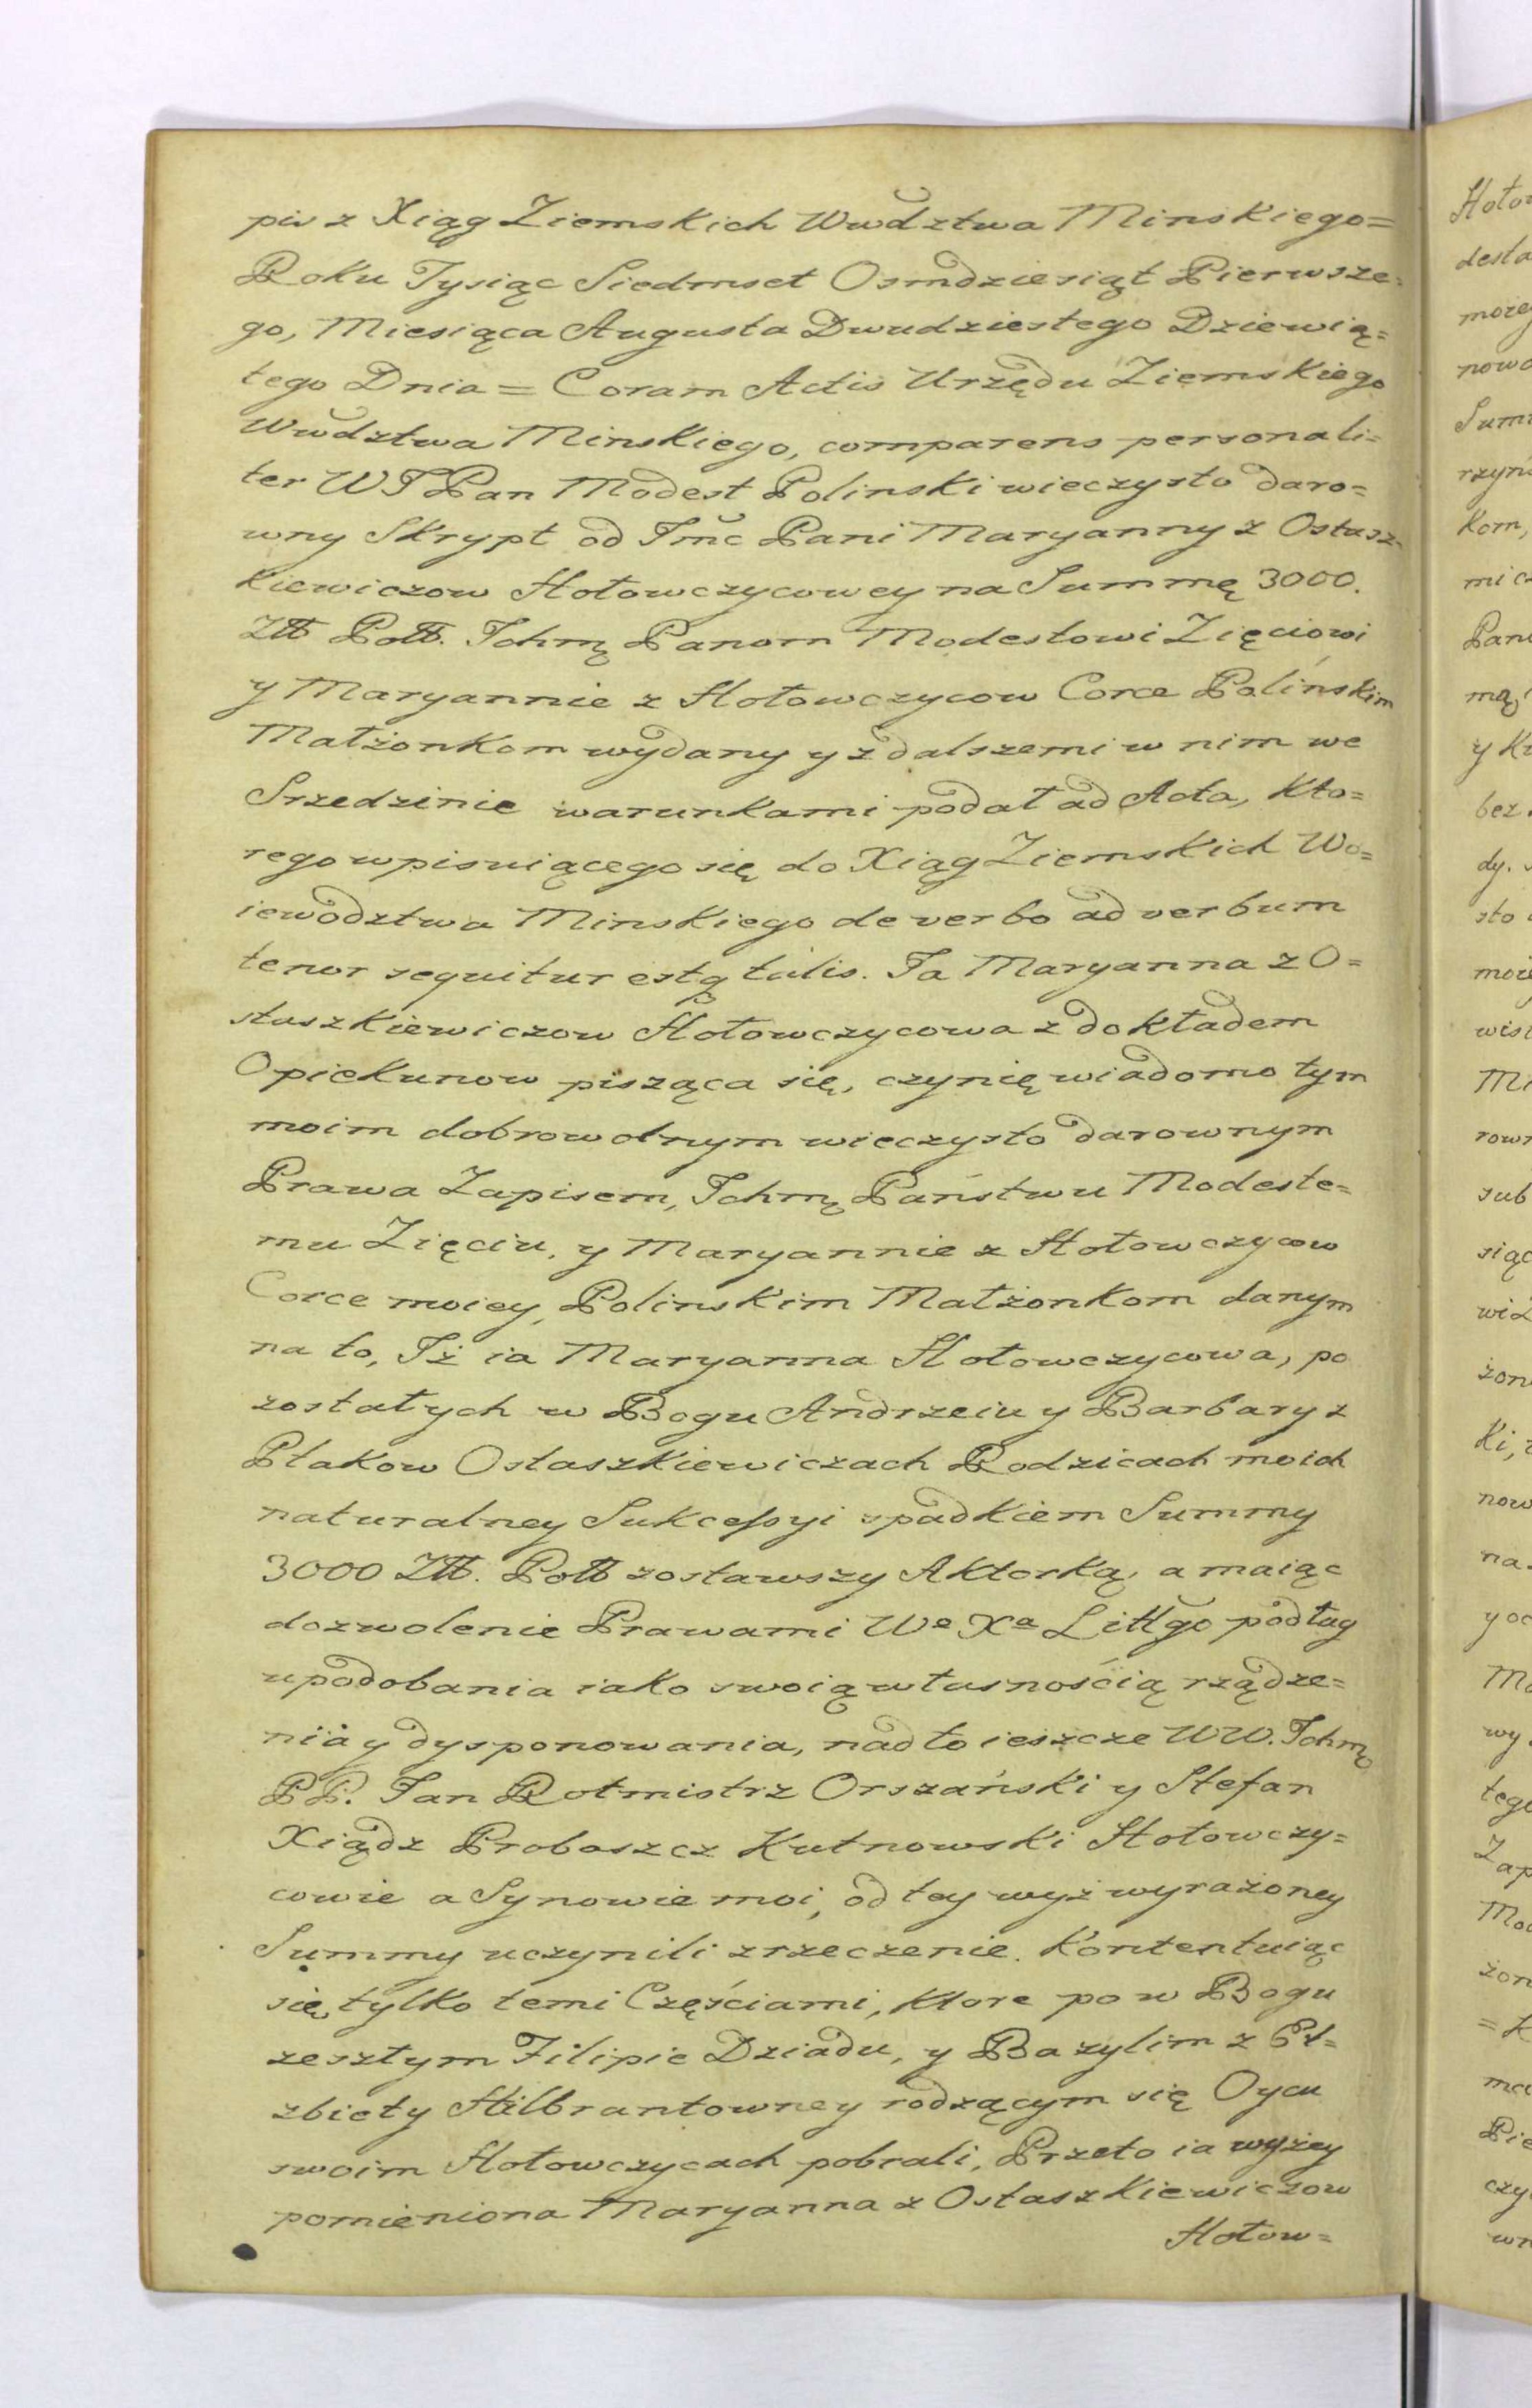 pis z Xiąg Ziemskich Wwdztwa Minskiego=
Roku Tysiąc Siedmset Osmdziesiąt Pierwsze=
go, Miesiąca Augusta Dwudziestego Dziewią=
tego Dnia = Coram Actis Urzędu Ziemskiego
Wwdztwa Minskiego, comparens personali=
ter WJPan Modest Polinski wieczysto daro=
wny Skrypt od Jmc Pani Maryanny z Ostasz=
kiewiczow Hołowczycowey na Summę 3000.
Złł Poll. Ichmę Panom Modestowi Zięciowi
y Maryannie z Hołowczycow Corce Polińskim
Małżonkom wydany y z dalszemi w nim we
Srzedzinie warunkami podał ad Acta, Kto=
rego wpisuiącego się do Xiąg Ziemskich Wo=
iewodztwa Minskiego de verbo ad verbum
tenor sequitur estq talis. Ja Maryanna z O=
staszkiewiczow Hołowczycowa z dokładem
Opiekunow pisząca się, czynię wiadomo tym
moim dobrowolnym wieczysto darownym
Prawa Zapisem, Ichmę Państwu Modeste=
mu Zięciu, y Maryannie z Hołowczycow
Corce moiey, Polinskim Małżonkom danym
na to, Iż ia Maryanna Hołowczycowa, po
zostałych w Bogu Andrzeiu y Barbary z
Ptakow Ostaszkiewiczach Rodzicach moich
naturalney Sukcessyi spadkiem Summy
3000 Złł. Poll zostawszy Aktorką, a maiąc
dozwolenie Prawami Wo Xa Littgo podług
upodobania iako swoią własnością rządze=
nia y dysponowania, nad to ieszcze WW. Ichmę
PP. Jan Rotmistrz Orszański y Stefan
Xiądz Proboszcz Kutnowski Hołowczy=
cowie a Synowie moi, od tey wyż wyrażoney
Summy uczynili zrzeczenie. Kontentuiąc
się tylko temi Częściami, Ktore po w Bogu
zeszłym Filipie Dziadu, y Bazylim z El=
zbiety Hilbrantowney rodzącym się Oycu
swoim Hołowczycach pobrali, Przeto ia wyżey
pomieniona Maryanna z Ostaszkiewiczow
Hołow=